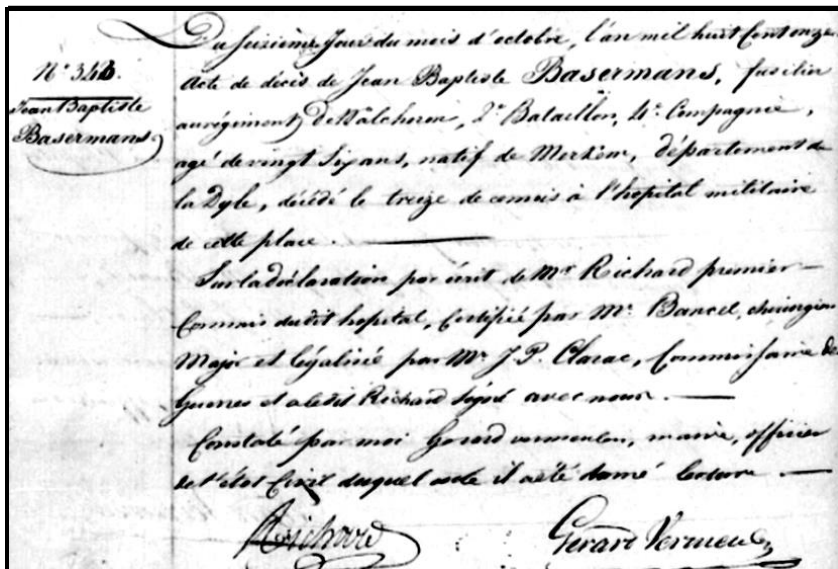 N° 346.
Jean Baptiste
Basermans
Du Seizième Jour du mois d'octobre, l'an mil huit Cent onze
Acte de décès de Jean Baptiste Basermans, fusilier
au régiment de Walcheren, 2e Bataillon, 4e Compagnie,
agé de vingt Six ans, natif de Merxem, département de
la Dyle, décédé le treize de ce mois à l'hopital militaire
de cette place.
Sur la déclaration par écrit de Mr Richard premier
Commis du dit hopital, Certifiée par Mr Bancel, chirurgien
Major et légalisée par Mr J. P. Clarac, Commissaire de
Guerres et a ledit Richard Signé avec nous.
Constaté par moi Gerard Vermeulen, maire, officier
de l'état Civil duquel acte il a été donné lecture
Richard
Gerard Vermeulen